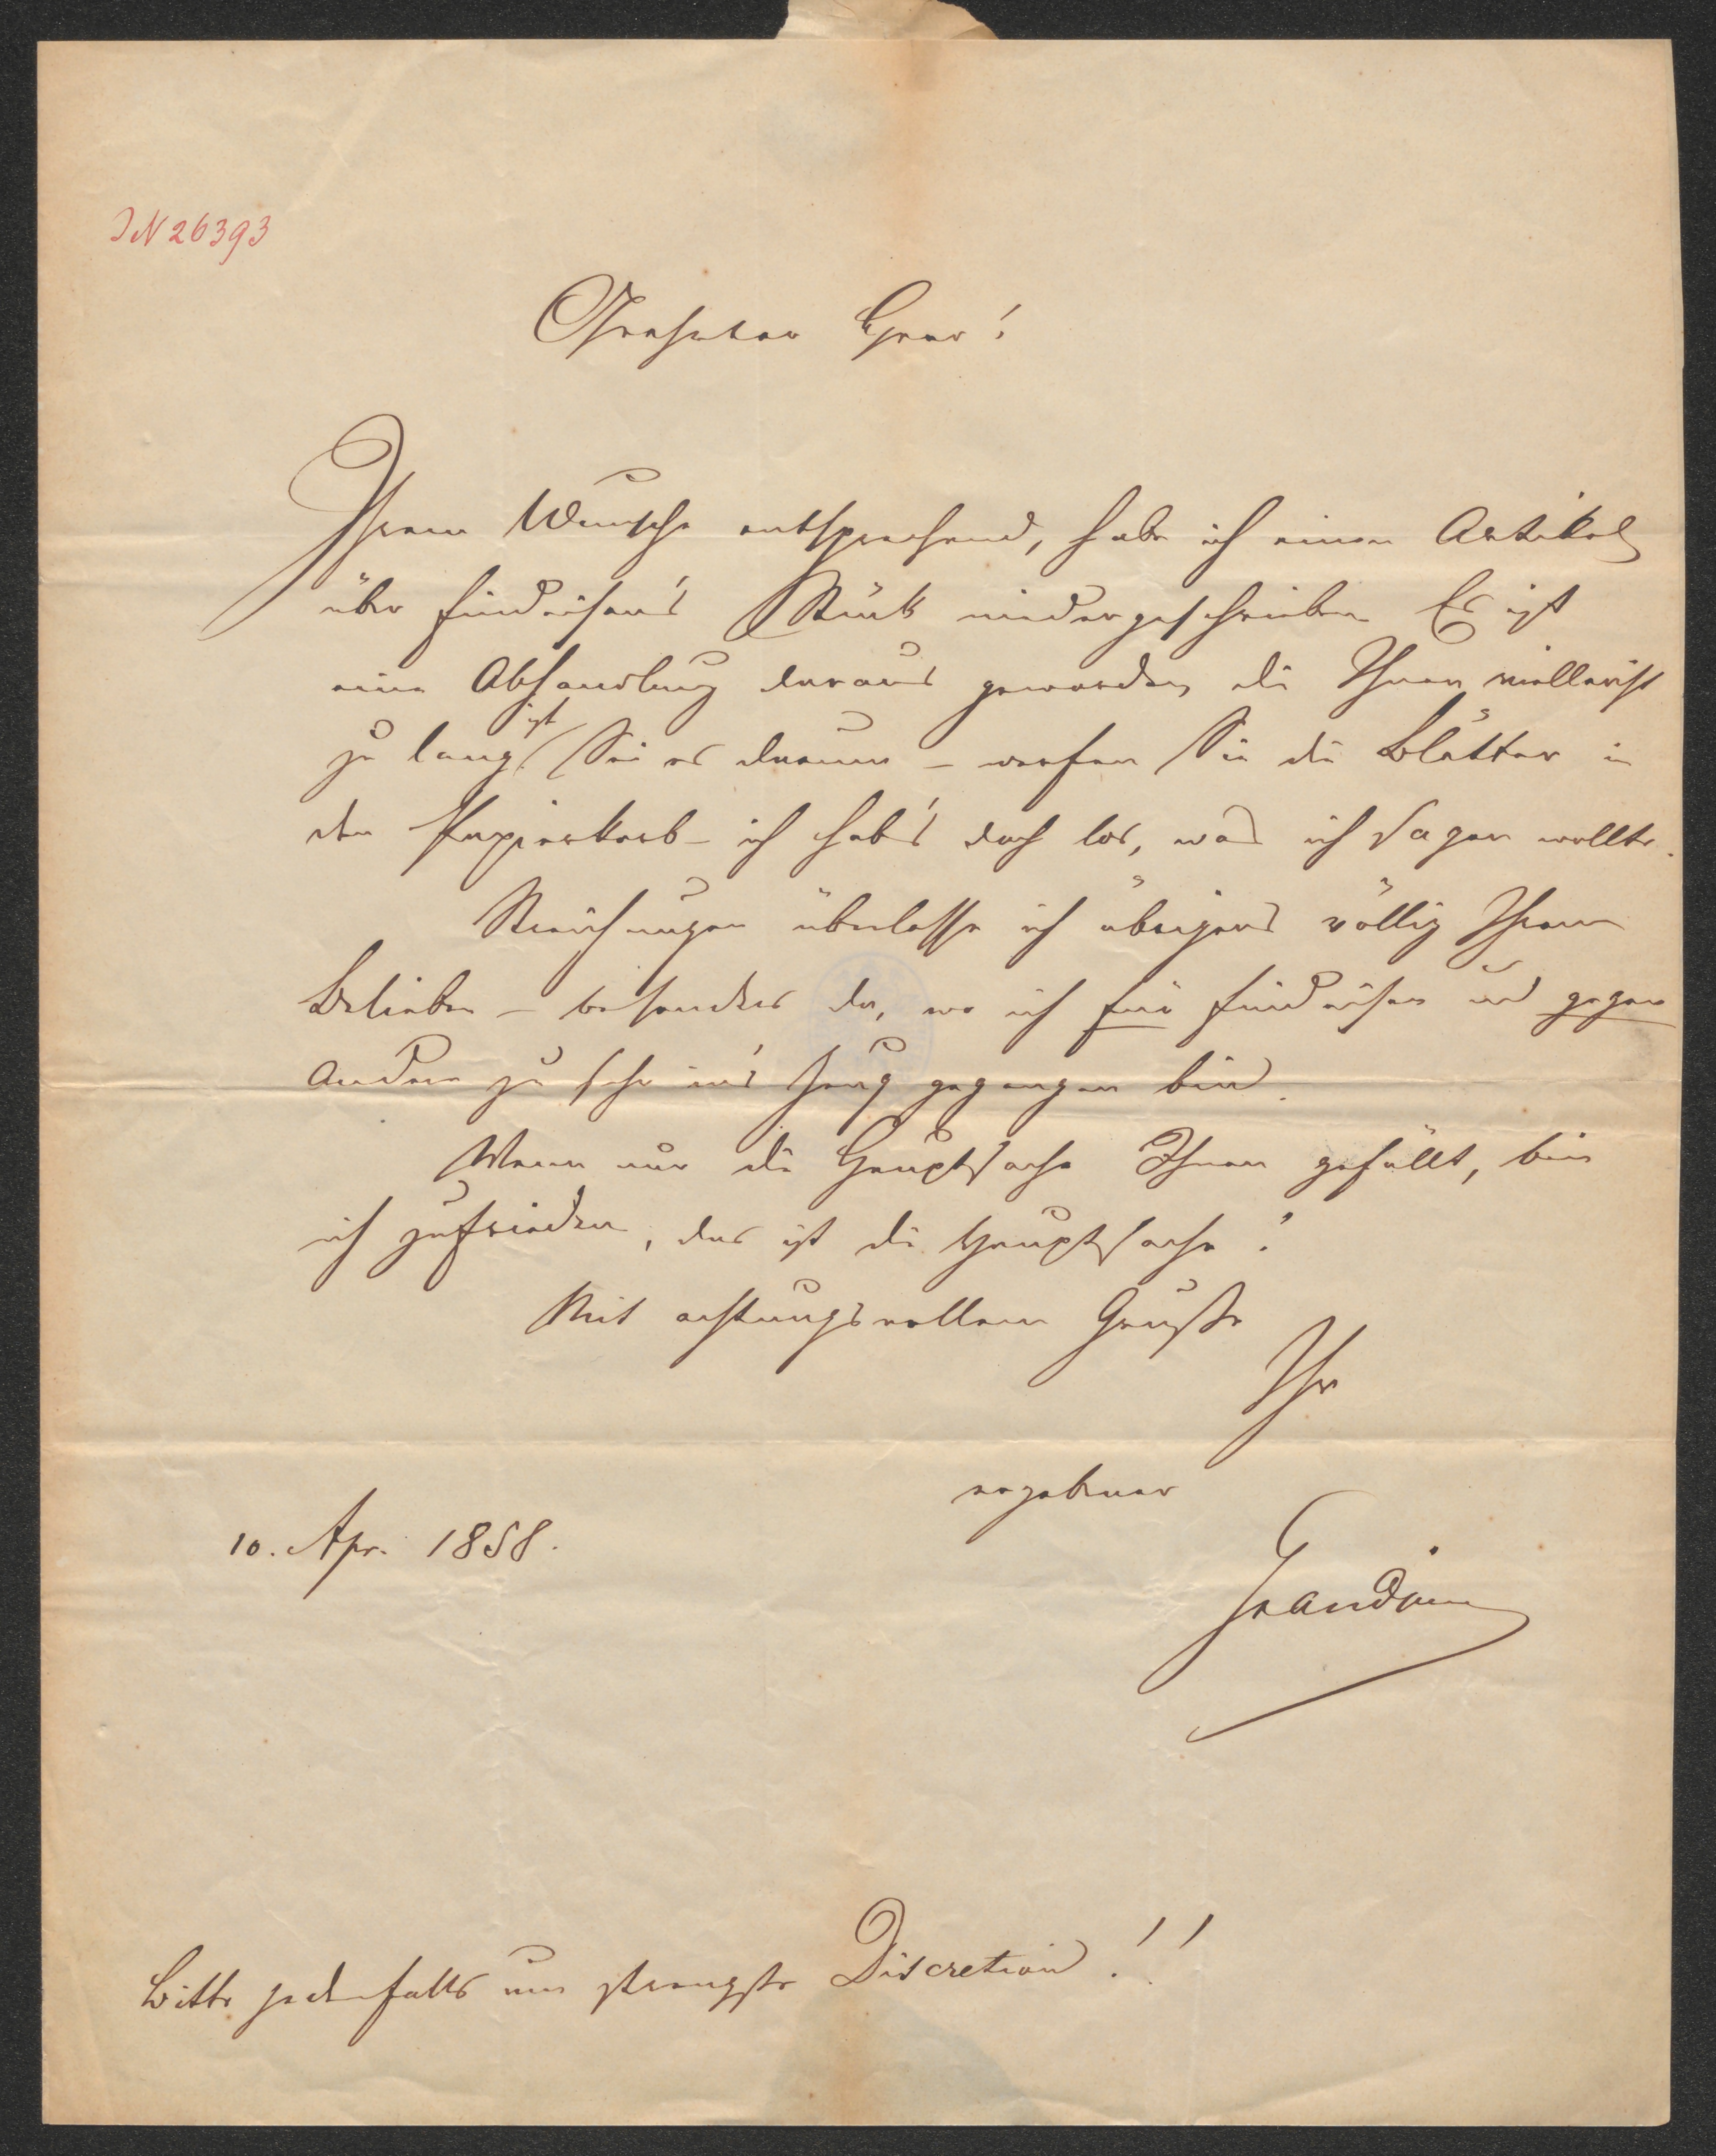 IN 26393
Verehrter Herr!
Ihrem Wunsche entsprechend, habe ich einen Artikel
über Findeisen's Stück niedergeschrieben Es ist
eine Abhandlung daraus geworden, die Ihnen vielleicht
zu lang ist. Sei es darum – werfen Sie die Blätter in
den Papierkorb – ich hab's doch los, was ich sagen wollte.
Streichungen überlasse ich übrigens völlig Ihrem
Belieben – besonders da, wo ich für Findeisen und gegen
Andere zu sehr in's Zeug gegangen bin.
Wenn nur die Hauptsache Ihnen gefällt, bin
ich zufrieden, das ist die Hauptsache!
Mit achtungsvollem Gruße
Ihr
ergebener
10. Apr. 1858.
Grandjean
Bitte jedenfalls um strengste Discretion!!